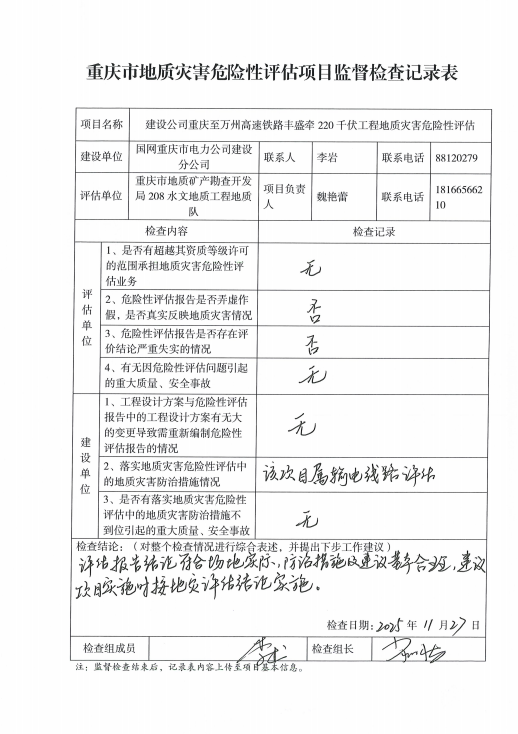 重庆市地质灾害危险性评估项目监督检查记录表
项目名称 建设公司重庆至万州高速铁路丰盛牵 220 千伏工程地质灾害危险性评估
建设单位 国网重庆市电力公司建设
分公司 联系人 李岩 联系电话 88120279
评估单位 重庆市地质矿产勘查开发
局 208 水文地质工程地质
队 项目负责
人 魏艳蕾 联系电话 181665662
10
检查内容 检查记录
评估单位
1、是否有超越其资质等级许可
的范围承担地质灾害危险性评
估业务 无
2、危险性评估报告是否弄虚作
假，是否真实反映地质灾害情况 否
3、危险性评估报告是否存在评
价结论严重失实的情况 否
4、有无因危险性评估问题引起
的重大质量、安全事故 无
建设单位
1、工程设计方案与危险性评估
报告中的工程设计方案有无大
的变更导致需重新编制危险性
评估报告的情况 无
2、落实地质灾害危险性评估中
的地质灾害防治措施情况 该项目属输电线路评估
3、是否有落实地质灾害危险性
评估中的地质灾害防治措施不
到位引起的重大质量、安全事故 无
检查结论：（对整个检查情况进行综合表述，并提出下步工作建议）
评估报告结论符合场地实际，防治措施及建议基本合理，建议
项目实施时按地灾评估结论实施。
检查日期：2025 年 11 月 27 日
检查组成员 检查组长
注：监督检查结束后，记录表内容上传至项目基本信息。